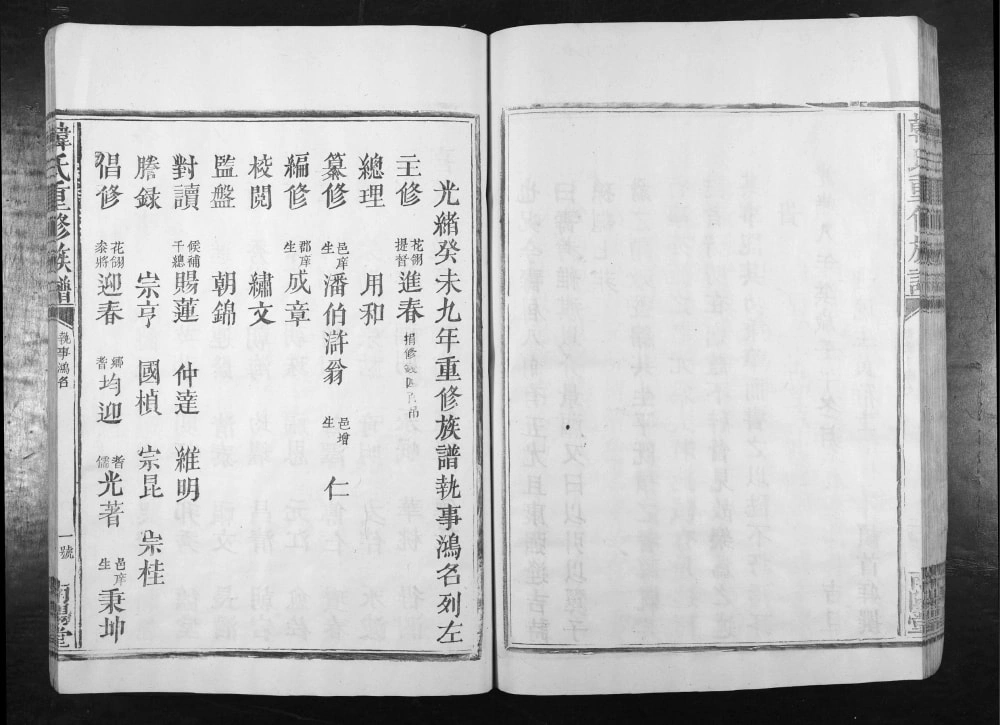 光緒癸未九年重修族譜執事鴻名列左
主修 花翎提督 進春 捐修
總理 用和
纂修 邑庠生 潘伯滸翁 邑增生 仁
編修 郡庠生 成章
校閱 繡文
監盤 朝錦
對讀 候補千總 賜蓮 仲達 維明
謄録 宗亨 國楨 宗昆 宗桂
倡修 花翎叅將 迎春 鄉耆 均迎 耆儒 光著 邑庠生 秉坤
韓氏重修族譜 執事鴻名 一號 南陽堂